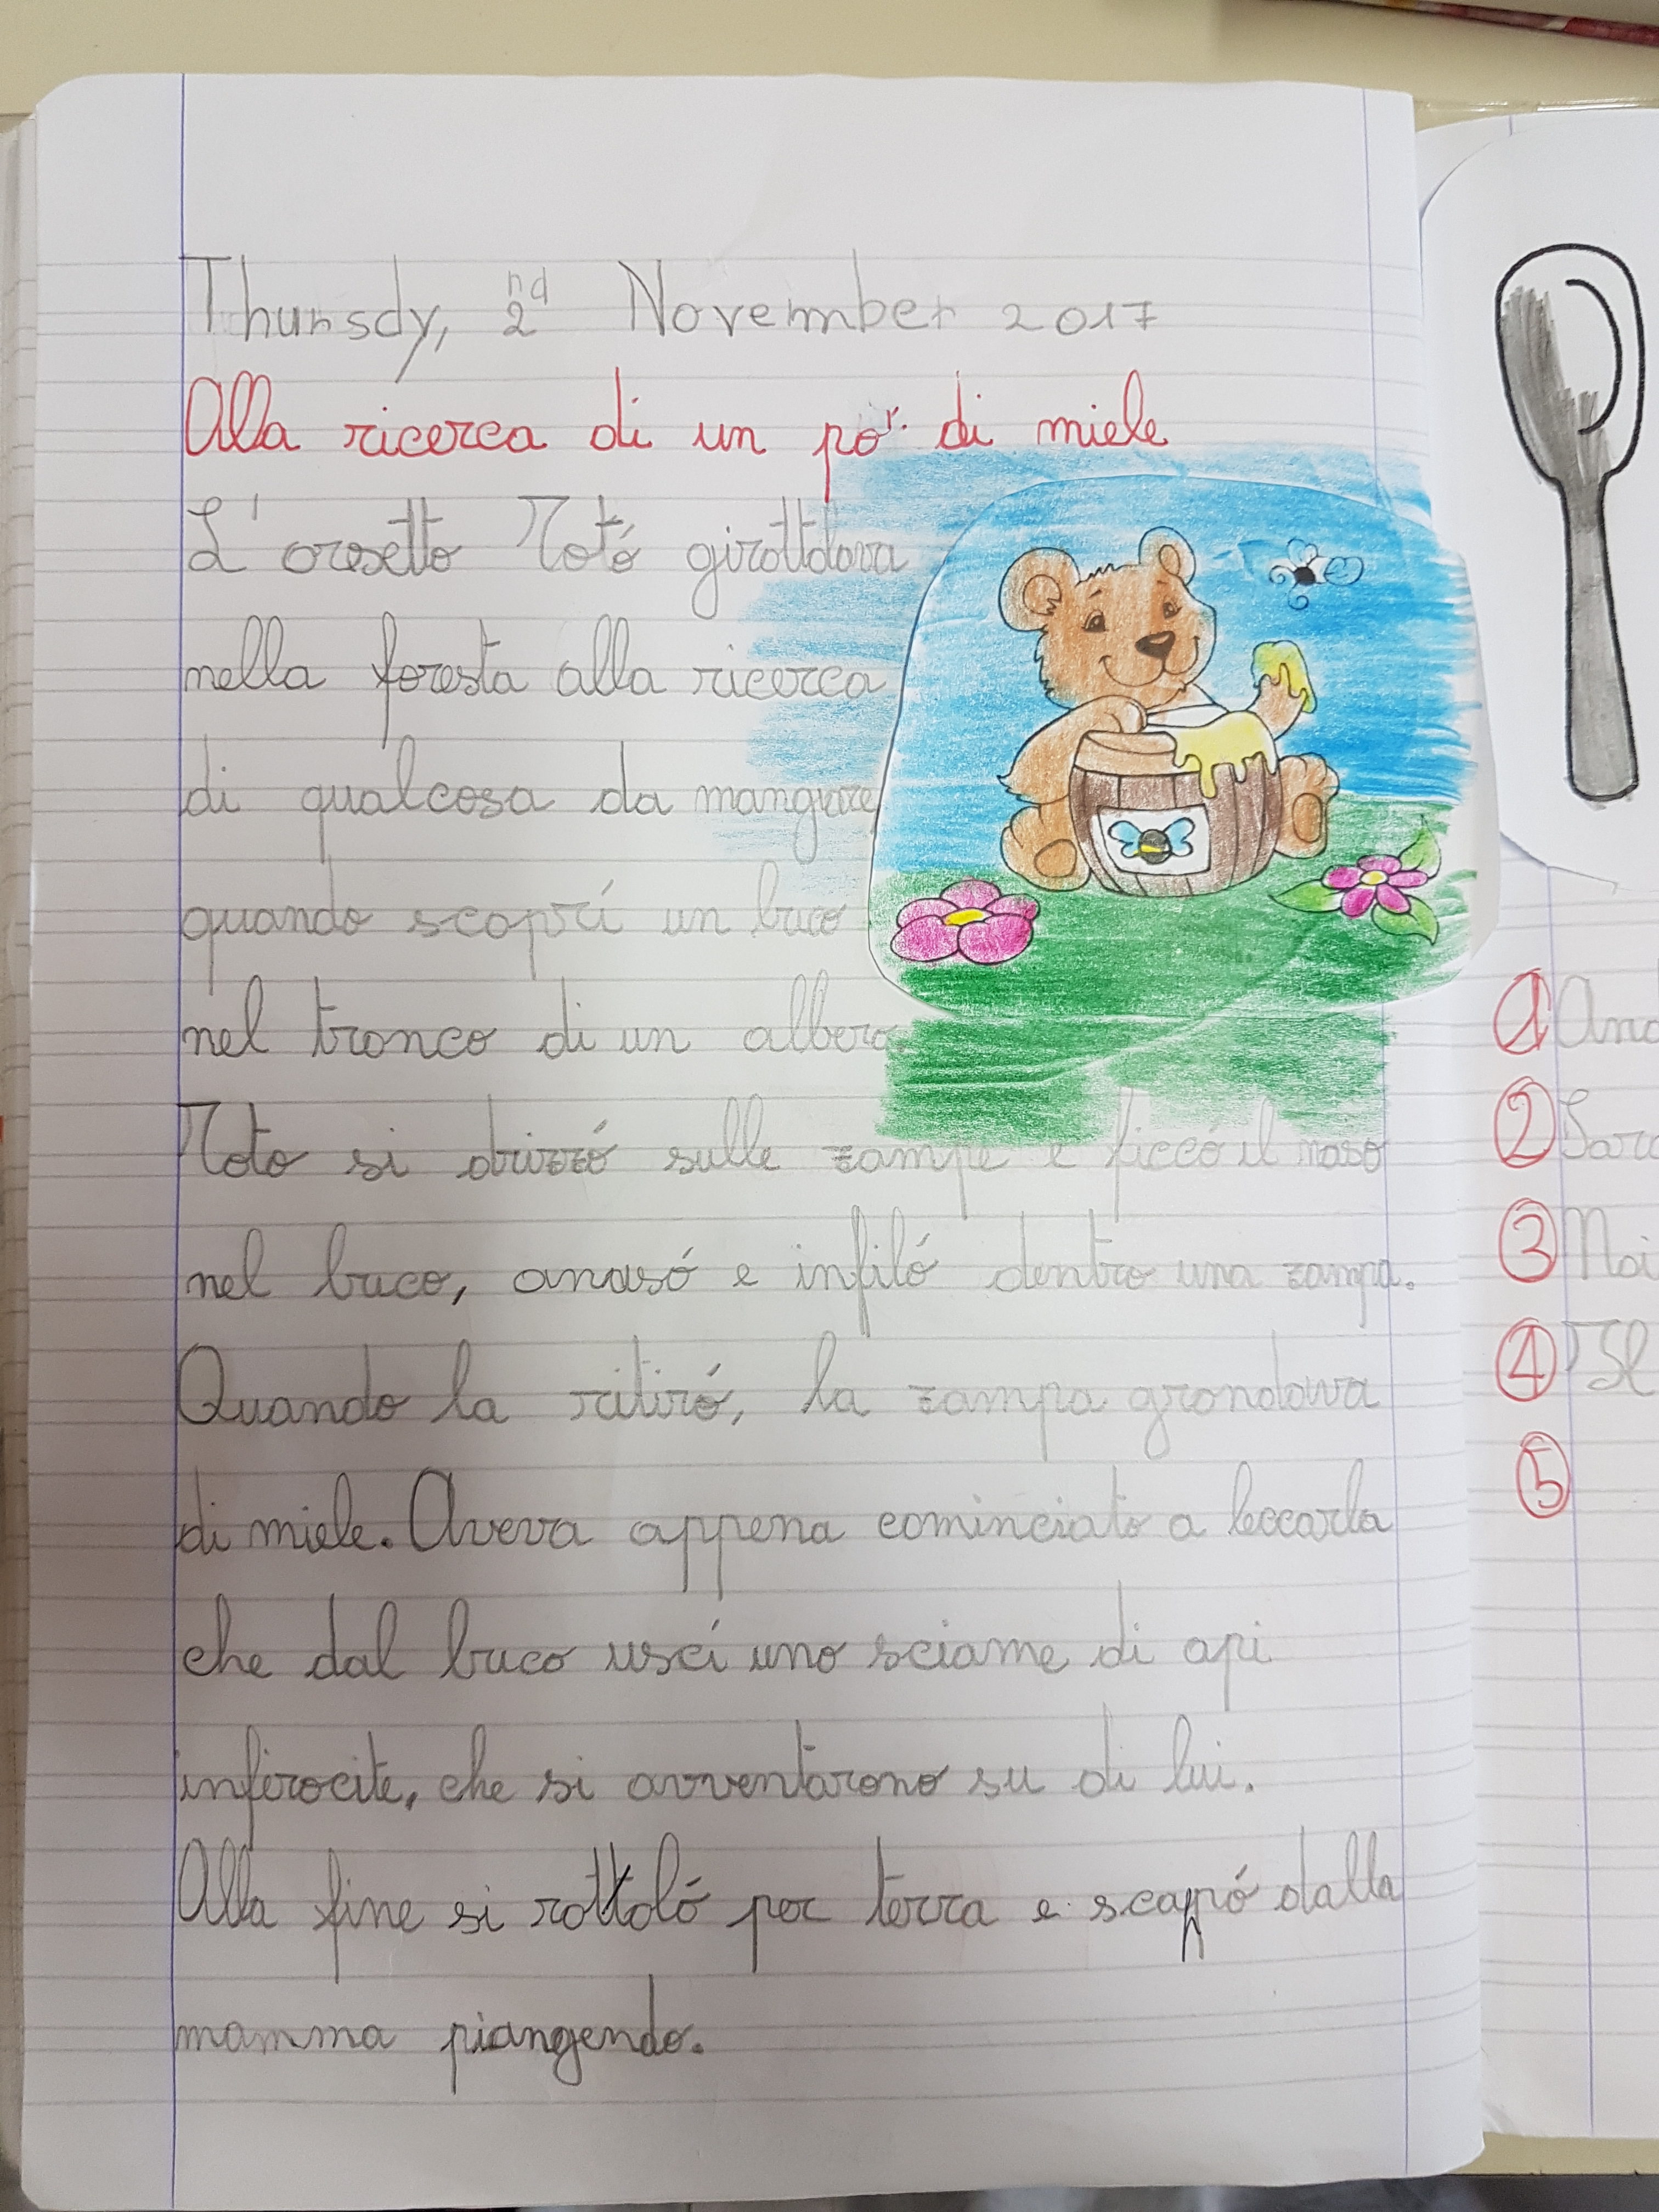 Thursdy, 2nd November 2017
Alla ricerca di un pó. di miele
L'orsetto Totó girottdava
nella foresta alla ricerca
di qualcosa da mangiare,
quando scoprí un buco
nel tronco di un albero.
Toto si drizzó sulle zampe e ficcó il naso
nel buco, anusó e infiló dentro una zampa.
Quando la ritiró, la zampa grondava
di miele. Aveva appena cominciato a leccarla
che dal buco uscí uno sciame di api
inferocite, che si avventarono su di lui.
Alla fine si rottoló per terra e scappó dalla
mamma piangendo.
1 And
2 Sara
3 Noi
4
5